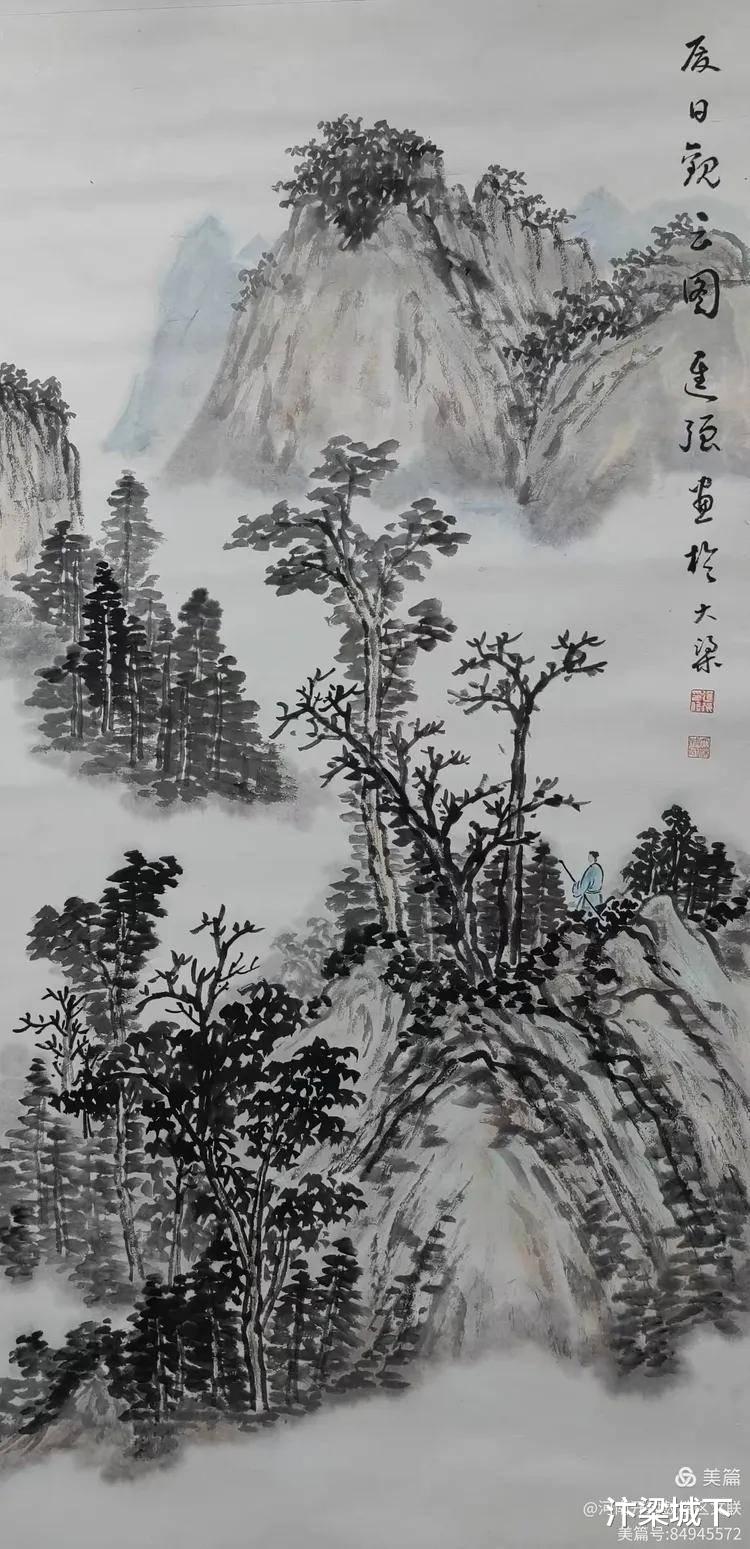 夏日观云图 进强画於大梁
美篇
汴梁城下
美篇号:84945572